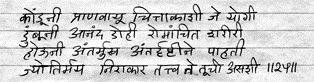 कोंडूनी प्राणवायू चित्ताकाशी जे योगी
डुंबूनी आनंद डोही रोमांचित शरीरी
होऊनी अंतर्मुख अंतर्दृष्टीने पाहती
ज्योतिर्मय निराकार तत्त्व ते तूचो असशी ॥२५॥